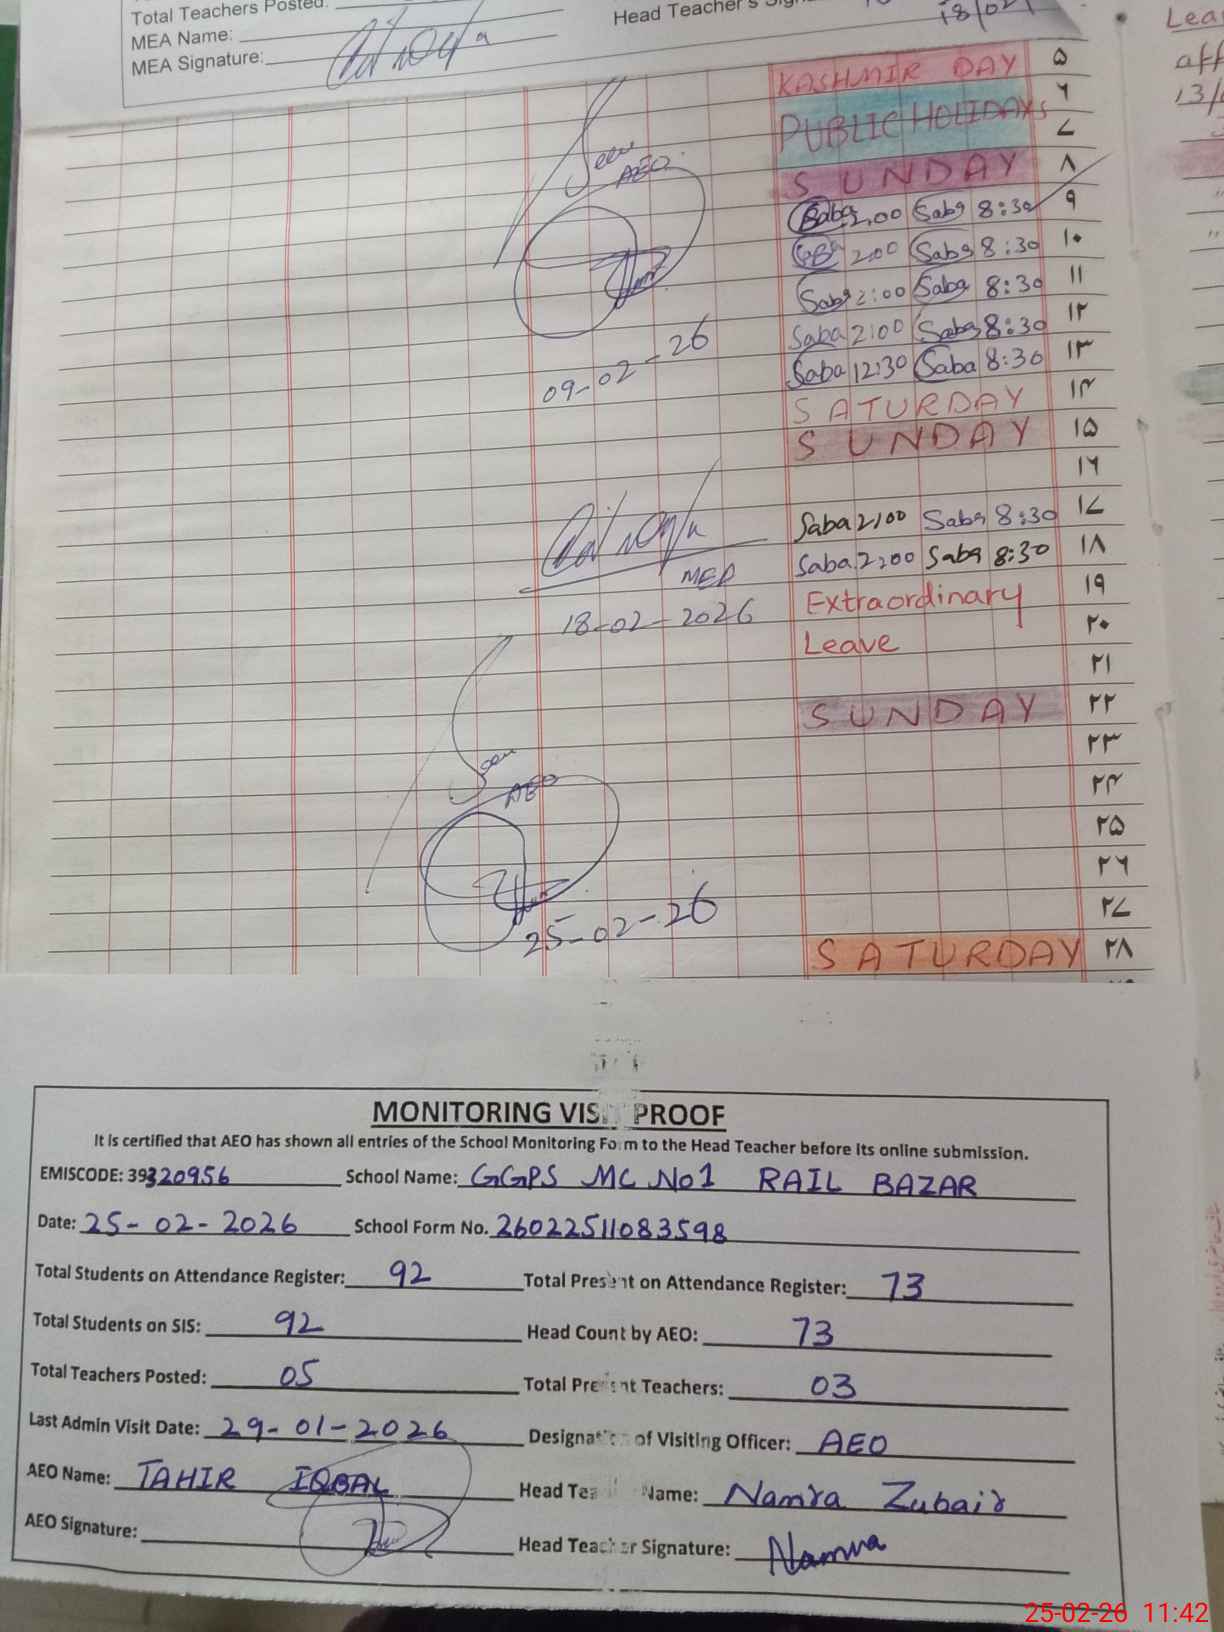 Total Teachers Posted:
MEA Name:
MEA Signature:
Head Teacher's
18/02/
KASHMIR DAY ۵
PUBLIC HOLIDAYS ۶
۷
SUNDAY ۸
Saba 2:00 Saba 8:30 ۹
2:00 Saba 8:30 ۱۰
Saba 2:00 Saba 8:30 ۱۱
Saba 2:00 Saba 8:30 ۱۲
Saba 12:30 Saba 8:30 ۱۳
SATURDAY ۱۴
SUNDAY ۱۵
۱۶
Saba 2:00 Saba 8:30 ۱۷
Saba 2:00 Saba 8:30 ۱۸
Extraordinary ۱۹
Leave ۲۰
۲۱
SUNDAY ۲۲
۲۳
۲۴
۲۵
۲۶
۲۷
SATURDAY ۲۸
Seen
AEO
09-02-26
18-02-2026
Seen
AEO
25-02-26
MONITORING VISIT PROOF
It is certified that AEO has shown all entries of the School Monitoring Form to the Head Teacher before its online submission.
EMISCODE: 39320956 School Name: GGPS MC No1 RAIL BAZAR
Date: 25-02-2026 School Form No. 26022511083598
Total Students on Attendance Register: 92 Total Present on Attendance Register: 73
Total Students on SIS: 92 Head Count by AEO: 73
Total Teachers Posted: 05 Total Present Teachers: 03
Last Admin Visit Date: 29-01-2026 Designation of Visiting Officer: AEO
AEO Name: TAHIR IQBAL Head Teacher Name: Namra Zubair
AEO Signature: Head Teacher Signature: Namra
25-02-26 11:42